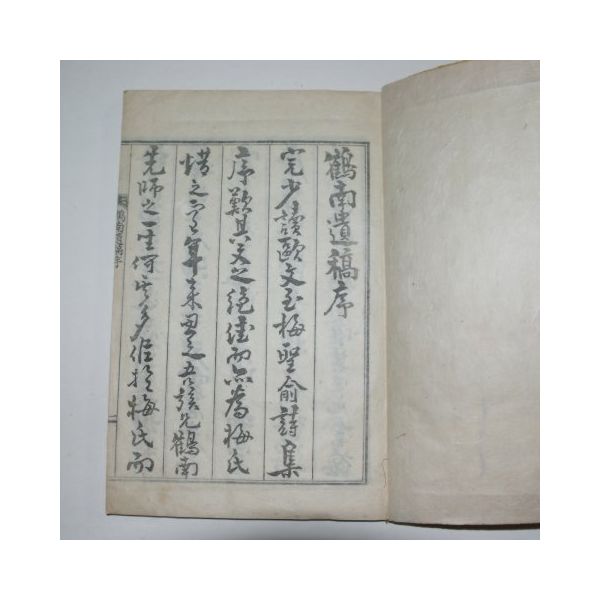 鶴南遺稿序
完少讀歐文至梅聖俞詩集
序歎其文之絶佳而亦為梅氏
惜之年来思之吾族兄鶴南
先師之一生何其多似於梅氏而
鶴南遺稿序